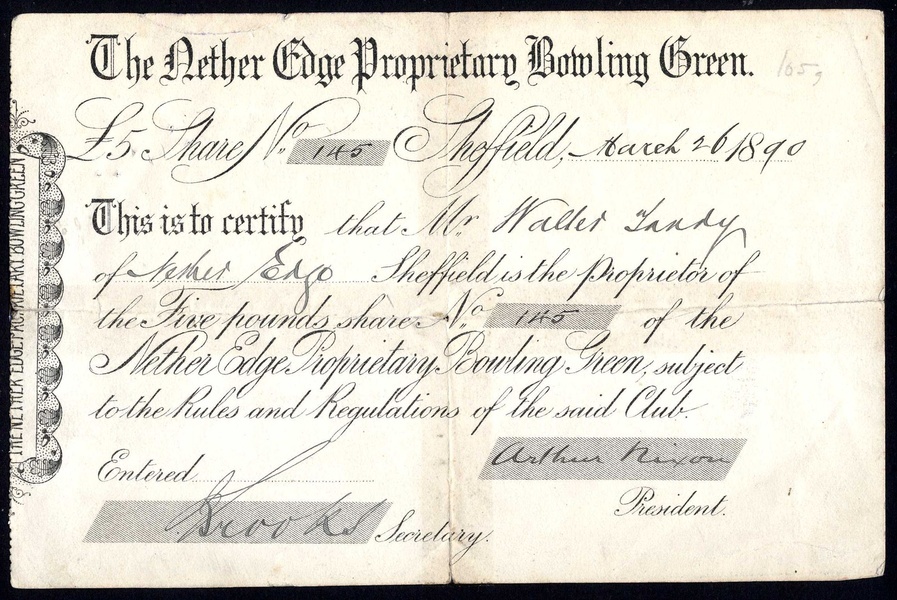 The Nether Edge Proprietary Bowling Green.
£5 Share No. 145 Sheffield, March 26 1890
This is to certify that Mr. Walter Tandy
of Nether Edge Sheffield is the Proprietor of
the Five pounds share No. 145 of the
Nether Edge Proprietary Bowling Green, subject
to the Rules and Regulations of the said Club.
Arthur Nixon
Entered
President.
Brooks Secretary.
THE NETHER EDGE PROPRIETARY BOWLING GREEN